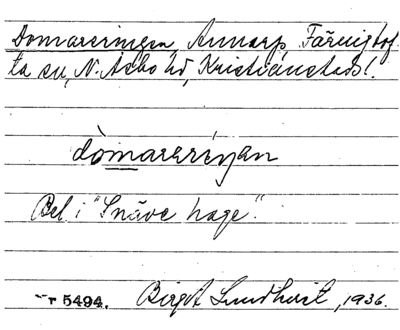 Domareringen, Annarp, Färingtof-
ta sn, N. Åsbo hd, Kristianstads l.
dòmareriŋen
Bel. i "Snäve hage".
5494. Birgit Lundkvist, 1936.